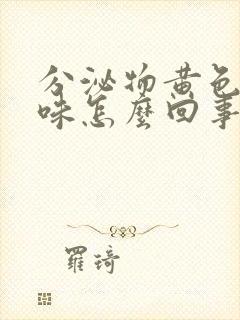 分泌物黄色
味怎麼回事
羅琦